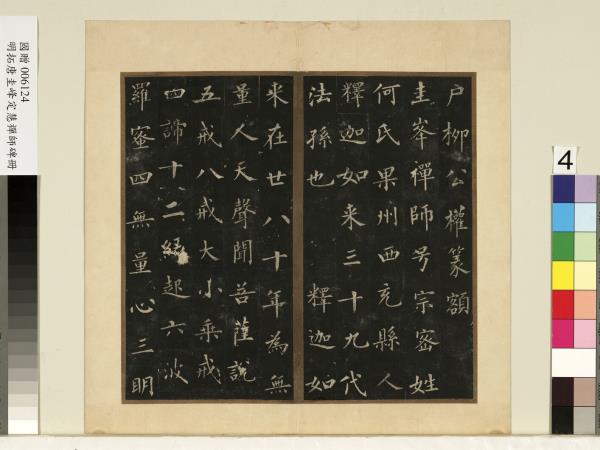 國贈 006124
明拓唐圭峰定慧禪師碑冊
戶柳公權篆額
圭峯禪師号宗密姓
何氏果州西充縣人
釋迦如来三十九代
法孫也　釋迦如
来在世八十年為無
量人天聲聞菩薩説
五戒八戒大小乗戒
四諦十二緣起六波
羅蜜四無量心三明
4